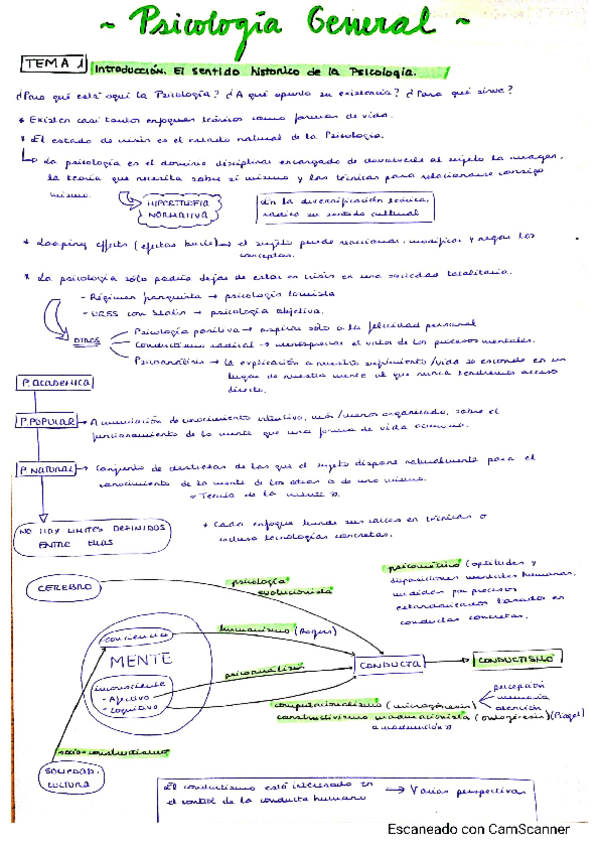 - Psicología General -
TEMA 1 Introducción. El sentido historico de la Psicología.
¿Para qué está aquí la Psicología? ¿A qué apunta su existencia? ¿Para qué sirve?
* Existen casi tantos enfoques teóricos como formas de vida.
* El estado de crisis es el estado natural de la Psicología.
La psicología es el dominio disciplinar encargado de devolverle al sujeto la imagen,
la teoría que necesita sobre sí mismo y las técnicas para relacionarse consigo
mismo.
HIPERTROFIA
NORMATIVA
En la diversificación teórica,
radica su sentido cultural
* Looping effects (efectos bucle) → el sujeto puede reaccionar, modificar y negar los
conceptos.
* La psicología sólo podría dejar de estar en crisis en una sociedad totalitaria.
- Régimen franquista → psicología tomista
- URSS con Stalin → psicología objetiva.
Psicología positiva → aspirar sólo a la felicidad personal
Conductismo radical → menospreciar el valor de los procesos mentales.
Psicoanálisis → la explicación a nuestro sufrimiento/vida se esconde en un
lugar de nuestra mente al que nunca tendremos acceso
directo.
P. ACADEMICA
P. POPULAR → Acumulación de conocimiento intuitivo, más/menos organizado, sobre el
funcionamiento de la mente que una forma de vida
P. NATURAL → Conjunto de destrezas de las que el sujeto dispone naturalmente para el
conocimiento de la mente de los otros o de uno mismo.
"Teoría de la mente".
NO HAY LIMITES DEFINIDOS
ENTRE ELLAS
* Cada enfoque hunde sus raíces en técnicas o
incluso tecnologías concretas.
CEREBRO
psicología
evolucionista
psicometría (aptitudes y
disposiciones mentales humanas,
medidas por procesos
estandarizados basados en
conductas concretas.
humanismo (Rogers)
consciencia
MENTE
inconsciente
- Afectivo
- Cognitivo
psicoanálisis
CONDUCTA
CONDUCTISMO
computacionalismo (microgénesis)
percepción
memoria
atención
constructivismo (ontogénesis) (Piaget)
socio-constructivismo
SOCIEDAD,
CULTURA
El conductismo está interesado en
el control de la conducta humana
→ Varias perspectivas
Escaneado con CamScanner